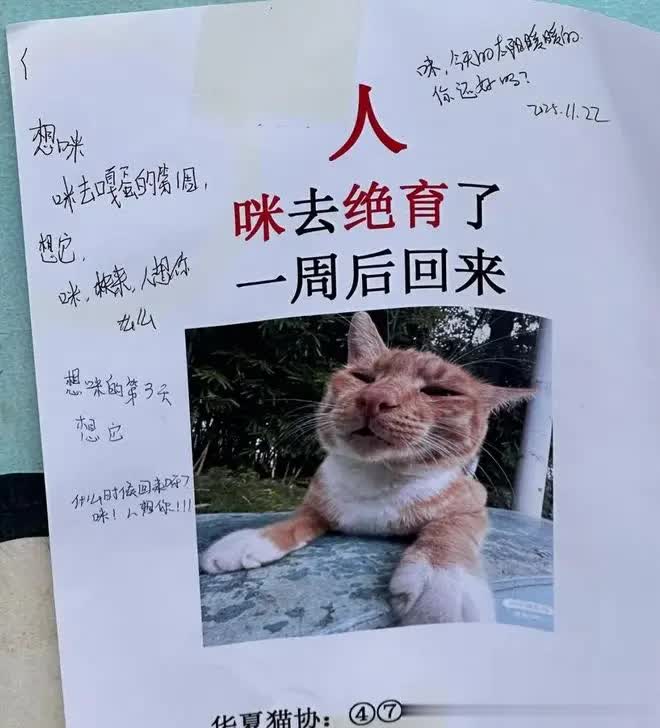 咪,今天的太阳暖暖的
你还好吗?
2025.11.22
人
咪去绝育了
一周后回来
想咪
咪去嘎蛋的第1周,
想它,
咪,快来,人想你
么么
想咪的第3天
想它
什么时候回来呀?
咪!人想你!!!
华夏猫协:④⑦